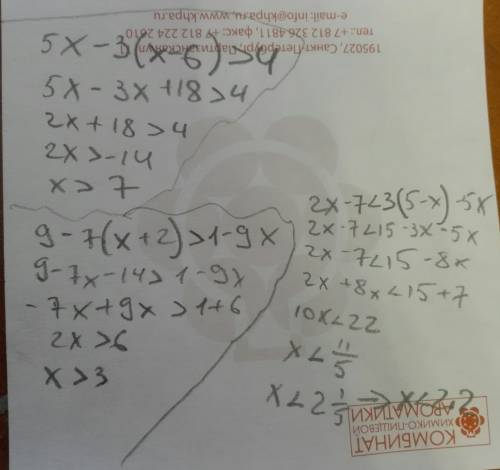 195027, Санкт-Петербург, Партизанская ул.
тел.: +7 812 326 4811, факс: +7 812 224 2610
e-mail: info@khpa.ru, www.khpa.ru
5x - 3(x-6) > 4
5x - 3x + 18 > 4
2x + 18 > 4
2x > -14
x > 7
9 - 7(x+2) > 1 - 9x
9 - 7x - 14 > 1 - 9x
-7x + 9x > 1 + 6
2x > 6
x > 3
2x - 7 < 3(5-x) - 5x
2x - 7 < 15 - 3x - 5x
2x - 7 < 15 - 8x
2x + 8x < 15 + 7
10x < 22
x < 11/5
x < 2 1/5 → x < 2,2
КОМБИНАТ
ХИМИКО-ПИЩЕВОЙ
АРОМАТИКИ